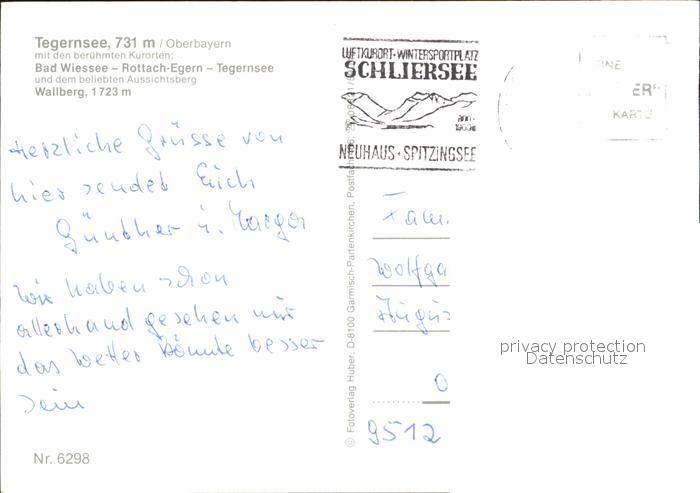 Tegernsee, 731 m / Oberbayern
mit den berühmten Kurorten:
Bad Wiessee – Rottach-Egern – Tegernsee
und dem beliebten Aussichtsberg
Wallberg, 1723 m
Herzliche Grüsse von
hier sendet Euch
Günther u. Margot
Wir haben schon
allerhand gesehen nur
das Wetter könnte besser
sein
Nr. 6298
© Fotoverlag Huber, D-8100 Garmisch-Partenkirchen, Postfach
LUFTKURORT · WINTERSPORTPLATZ
SCHLIERSEE
NEUHAUS · SPITZINGSEE
INE
ER
KARTE
Fam.
Wolfga
O
9512
privacy protection
Datenschutz